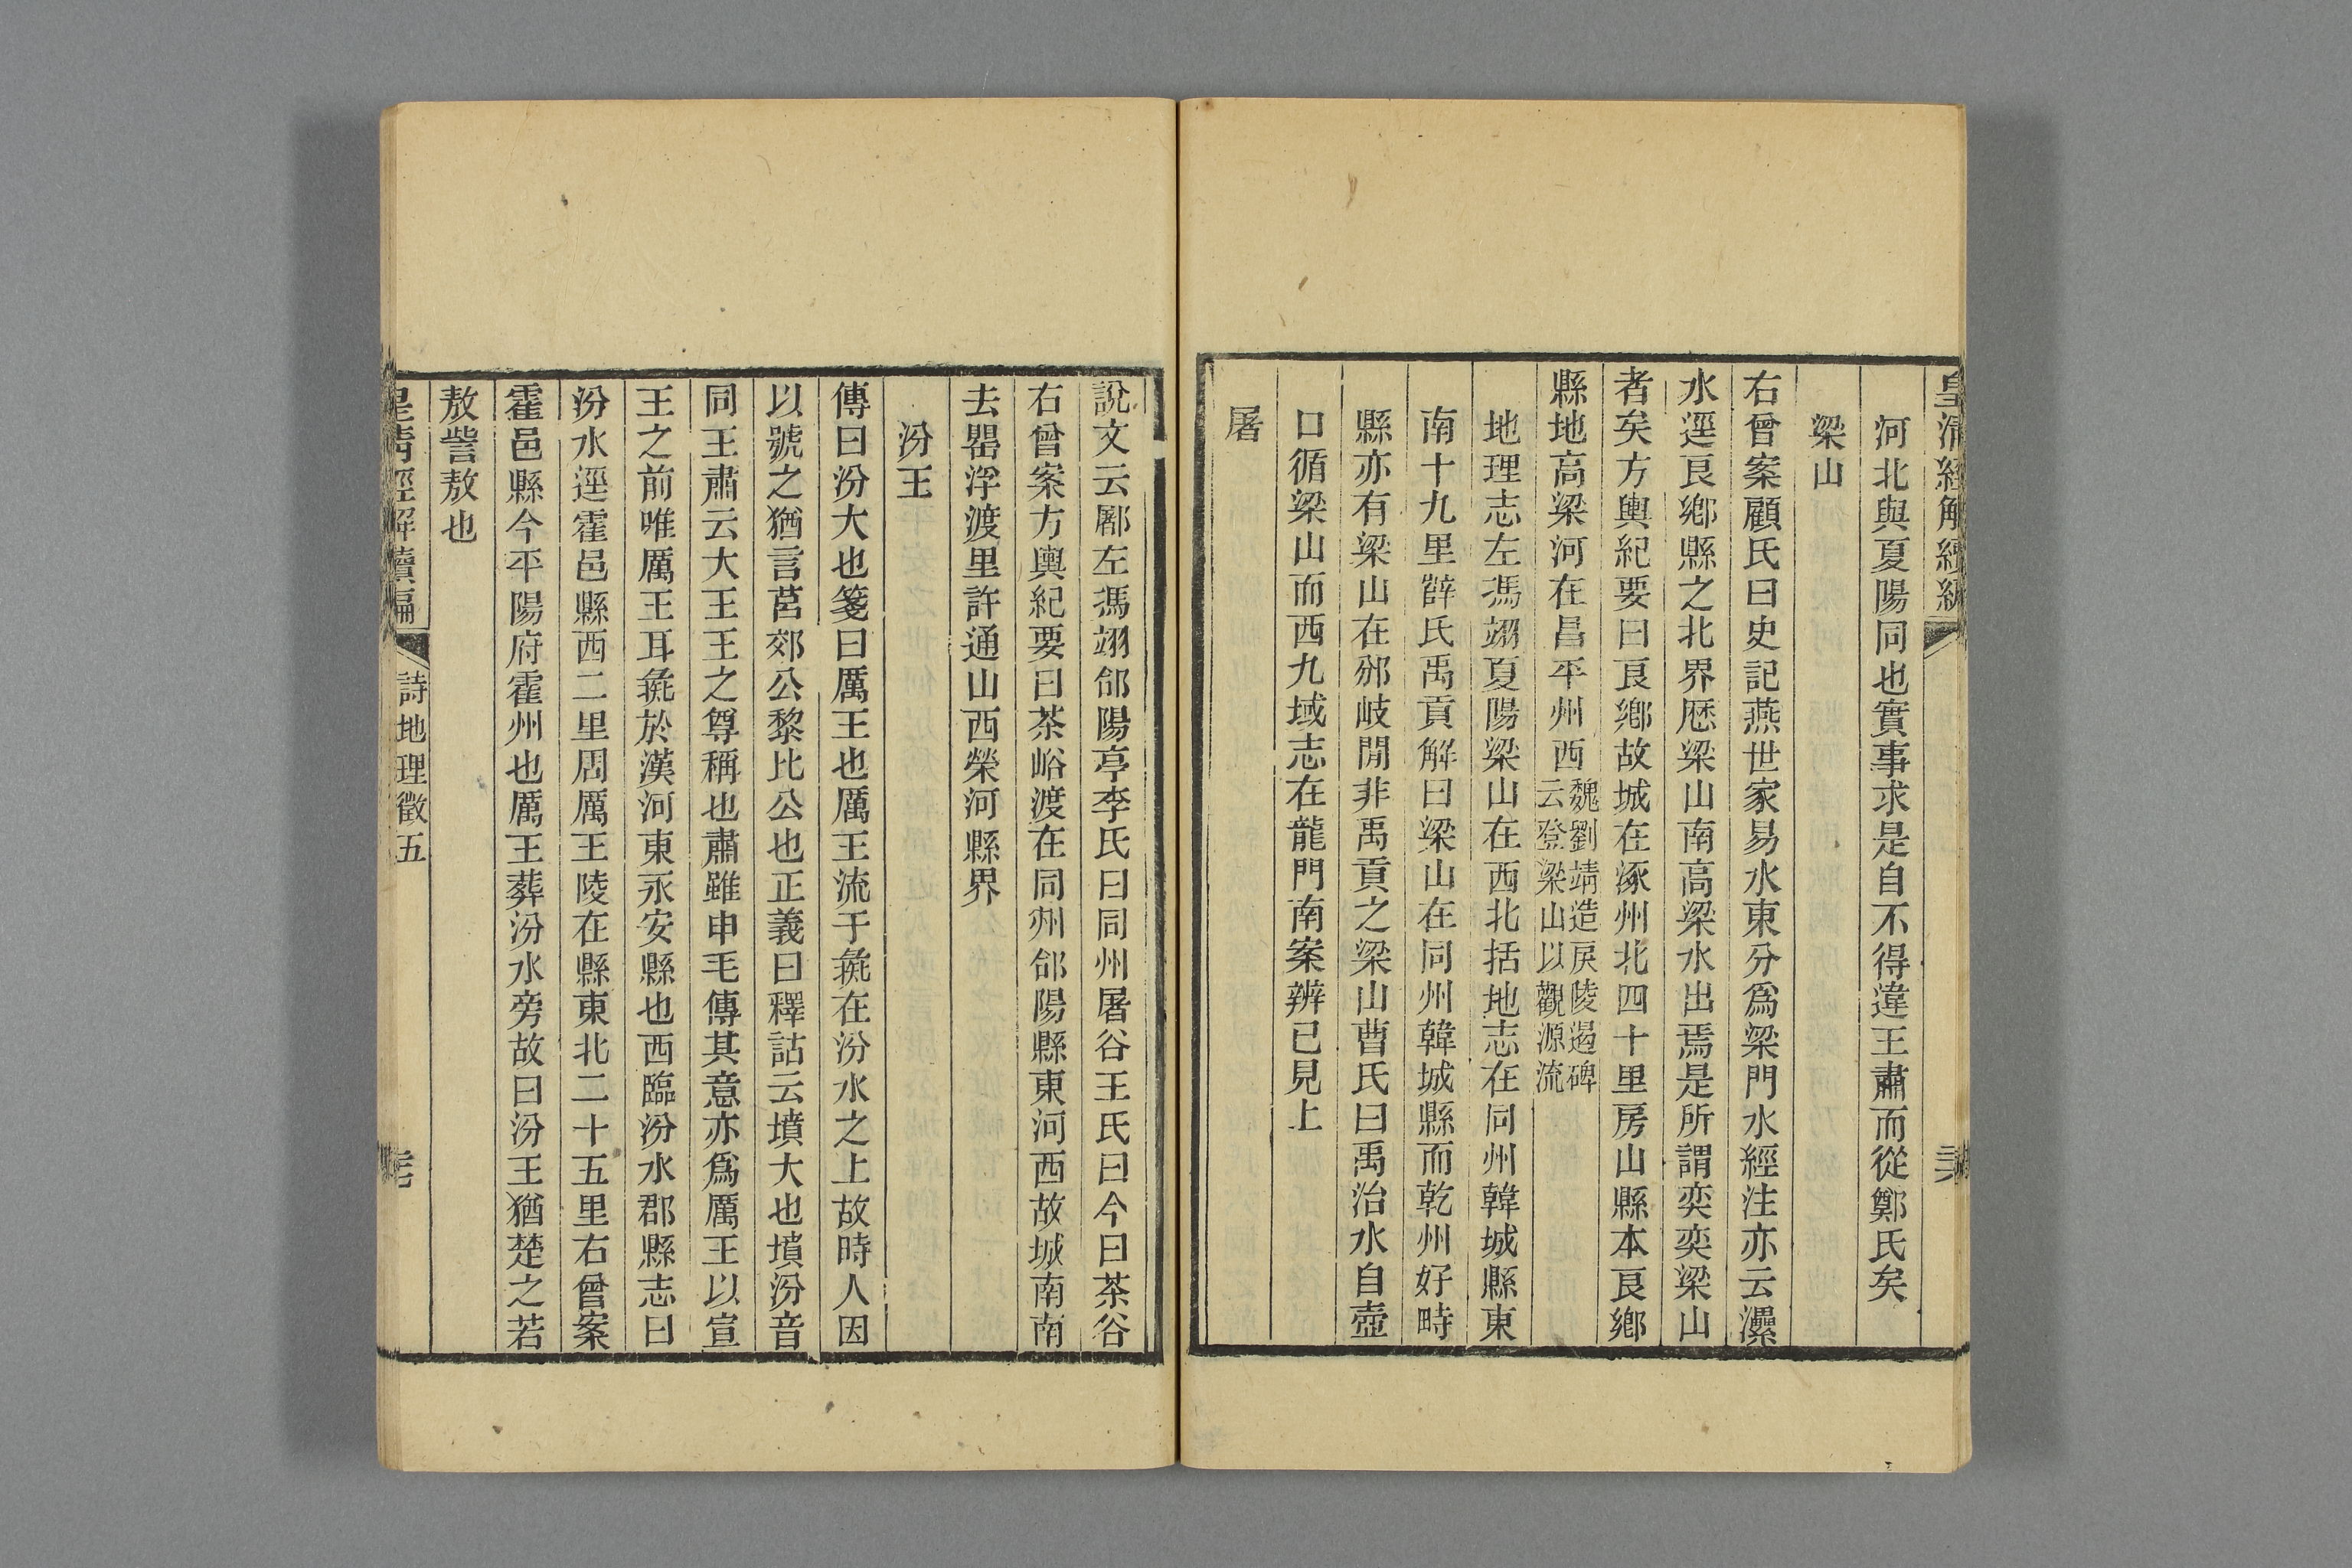 皇清經解續編
河北與夏陽同也實事求是自不得違王肅而從鄭氏矣
梁山
右曾案顧氏曰史記燕世家易水東分爲梁門水經注亦云㶟
水逕良鄉縣之北界歷梁山南高梁水出焉是所謂奕奕梁山
者矣方輿紀要曰良鄉故城在涿州北四十里房山縣本良鄉
縣地高梁河在昌平州西魏劉靖造戾陵遏碑云登梁山以觀源流
地理志左馮翊夏陽梁山在西北括地志在同州韓城縣東
南十九里薛氏禹貢解曰梁山在同州韓城縣而乾州好畤
縣亦有梁山在邠岐閒非禹貢之梁山曹氏曰禹治水自壺
口循梁山而西九域志在龍門南案辨已見上
屠
說文云𨞬左馮翊郃陽亭李氏曰同州屠谷王氏曰今曰茶谷
右曾案方輿紀要曰茶峪渡在同州郃陽縣東河西故城南南
去罌浮渡里許通山西榮河縣界
汾王
傳曰汾大也箋曰厲王也厲王流于彘在汾水之上故時人因
以號之猶言莒郊公黎比公也正義曰釋詁云墳大也墳汾音
同王肅云大王王之尊稱也肅雖申毛傳其意亦爲厲王以宣
王之前唯厲王耳彘於漢河東永安縣也西臨汾水郡縣志曰
汾水逕霍邑縣西二里周厲王陵在縣東北二十五里右曾案
霍邑縣今平陽府霍州也厲王葬汾水旁故曰汾王猶楚之若
敖訾敖也
皇清經解續編
詩地理徵五